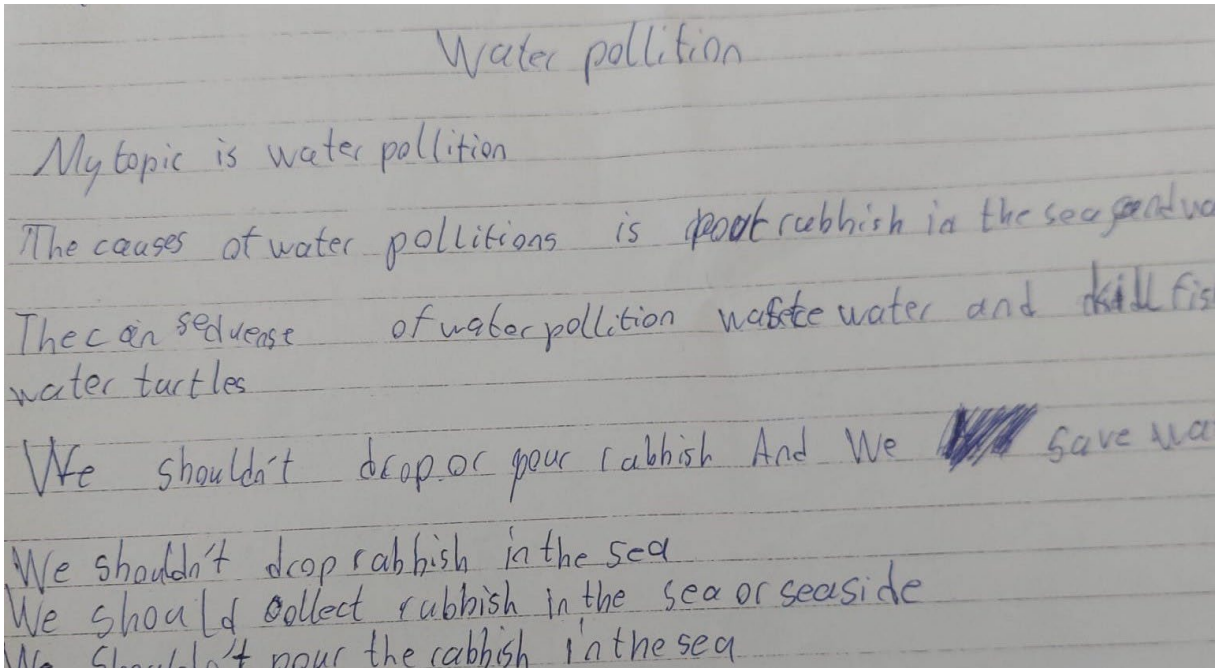 Water pollition
My topic is water pollition
The causes of water pollitions is pout rubbish in the sea and wa
The can seduense of water pollition waste water and kill fis
water turtles
We shouldn't drop or pour rabbish And We save wa
We shouldn't drop rabbish in the sea
We should collect rubbish in the sea or seaside
We shouldn't pour the rabbish in the sea